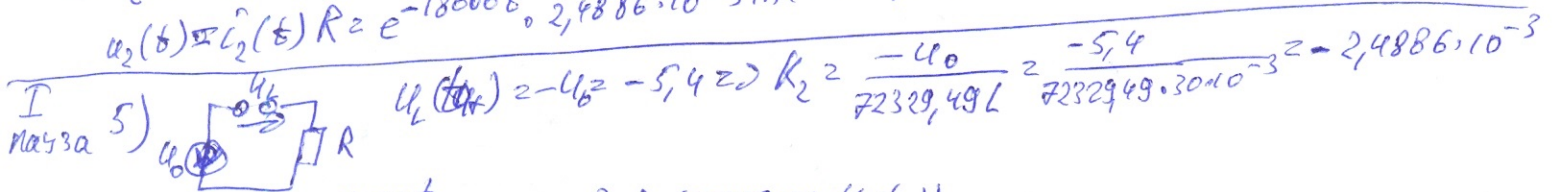 u₂(t) = i₂(t) R = e^-18000t · 2,4886·10
I 5) u_L U₀ R u_L(t₀₊) = -U₀ = -5,4 => K₂ = -U₀ / 72329,49L = -5,4 / 72329,49·30·10⁻³ = -2,4886·10⁻³
пауза